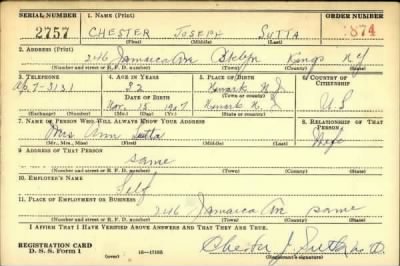 SERIAL NUMBER 1. NAME (Print) ORDER NUMBER
2757 CHESTER JOSEPH SUTTA 874
(First) (Middle) (Last)
2. ADDRESS (Print)
246 Jamaica Ave Bklyn Kings NY
(Number and street or R. F. D. number) (Town) (County) (State)
3. TELEPHONE 4. AGE IN YEARS 5. PLACE OF BIRTH 6. COUNTRY OF CITIZENSHIP
Ap. 7-3131 32 Newark N.J.
DATE OF BIRTH (Town or county)
Nov. 15 1907 Newark N.J. U S
(Exchange) (Number) (Mo.) (Day) (Yr.) (State or country)
7. NAME OF PERSON WHO WILL ALWAYS KNOW YOUR ADDRESS 8. RELATIONSHIP OF THAT PERSON
Mrs Ann Sutta Wife
(Mr., Mrs., Miss) (First) (Middle) (Last)
9. ADDRESS OF THAT PERSON
same
(Number and street or R. F. D. number) (Town) (County) (State)
10. EMPLOYER'S NAME
Self
11. PLACE OF EMPLOYMENT OR BUSINESS
246 Jamaica Ave same
(Number and street or R. F. D. number) (Town) (County) (State)
I AFFIRM THAT I HAVE VERIFIED ABOVE ANSWERS AND THAT THEY ARE TRUE.
REGISTRATION CARD
D. S. S. Form 1 (over) 16—17105 Chester J. Sutta
(Registrant's signature)